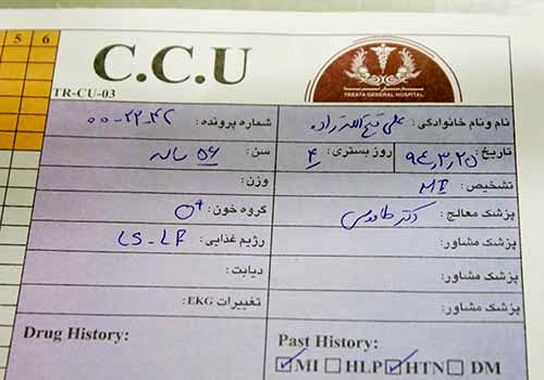 5 6
C.C.U
TR-CU-03
TREATA GENERAL HOSPITAL
نام ونام خانوادگی: علی فتح الله زاده
شماره پرونده: ۰۰-۲۲-۴۲
تاریخ: ۹۴,۳,۲۵
روز بستری: ۴
سن: ۵۶ ساله
تشخیص: MI
وزن:
پزشک معالج: دکتر طاوسی
گروه خون: O+
پزشک مشاور:
رژیم غذایی: LS-LF
پزشک مشاور:
دیابت:
پزشک مشاور:
تغییرات EKG:
Drug History:
Past History:
☑MI ☐HLP ☑HTN ☐ DM